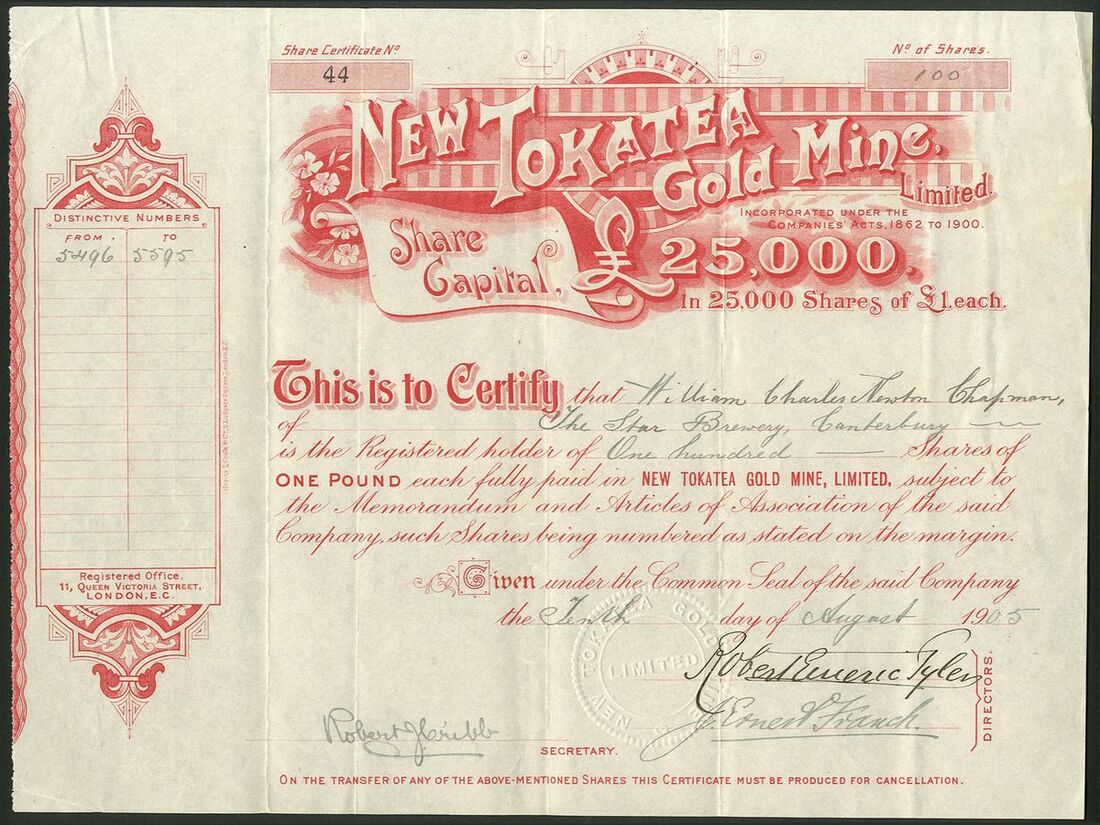 Share Certificate No
44
No of Shares.
100
New Tokatea
Gold Mine,
Limited.
Incorporated under the
Companies' Acts, 1862 to 1900.
Share
Capital,
£25,000.
In 25,000 Shares of £1. each.
Distinctive Numbers
FROM . TO
5496 5595
Registered Office.
11, Queen Victoria Street,
LONDON, E.C.
This is to Certify that William Charles Newton Chapman,
of The Star Brewery, Canterbury
is the Registered holder of One hundred Shares of
ONE POUND each fully paid in NEW TOKATEA GOLD MINE, LIMITED, subject to
the Memorandum and Articles of Association of the said
Company, such Shares being numbered as stated on the margin.
Given under the Common Seal of the said Company
the Tenth day of August 1905
NEW TOKATEA GOLD
LIMITED
Robert Emeric Tyler
Ernest Franck.
DIRECTORS.
Robert J Cribb
SECRETARY.
ON THE TRANSFER OF ANY OF THE ABOVE-MENTIONED SHARES THIS CERTIFICATE MUST BE PRODUCED FOR CANCELLATION.